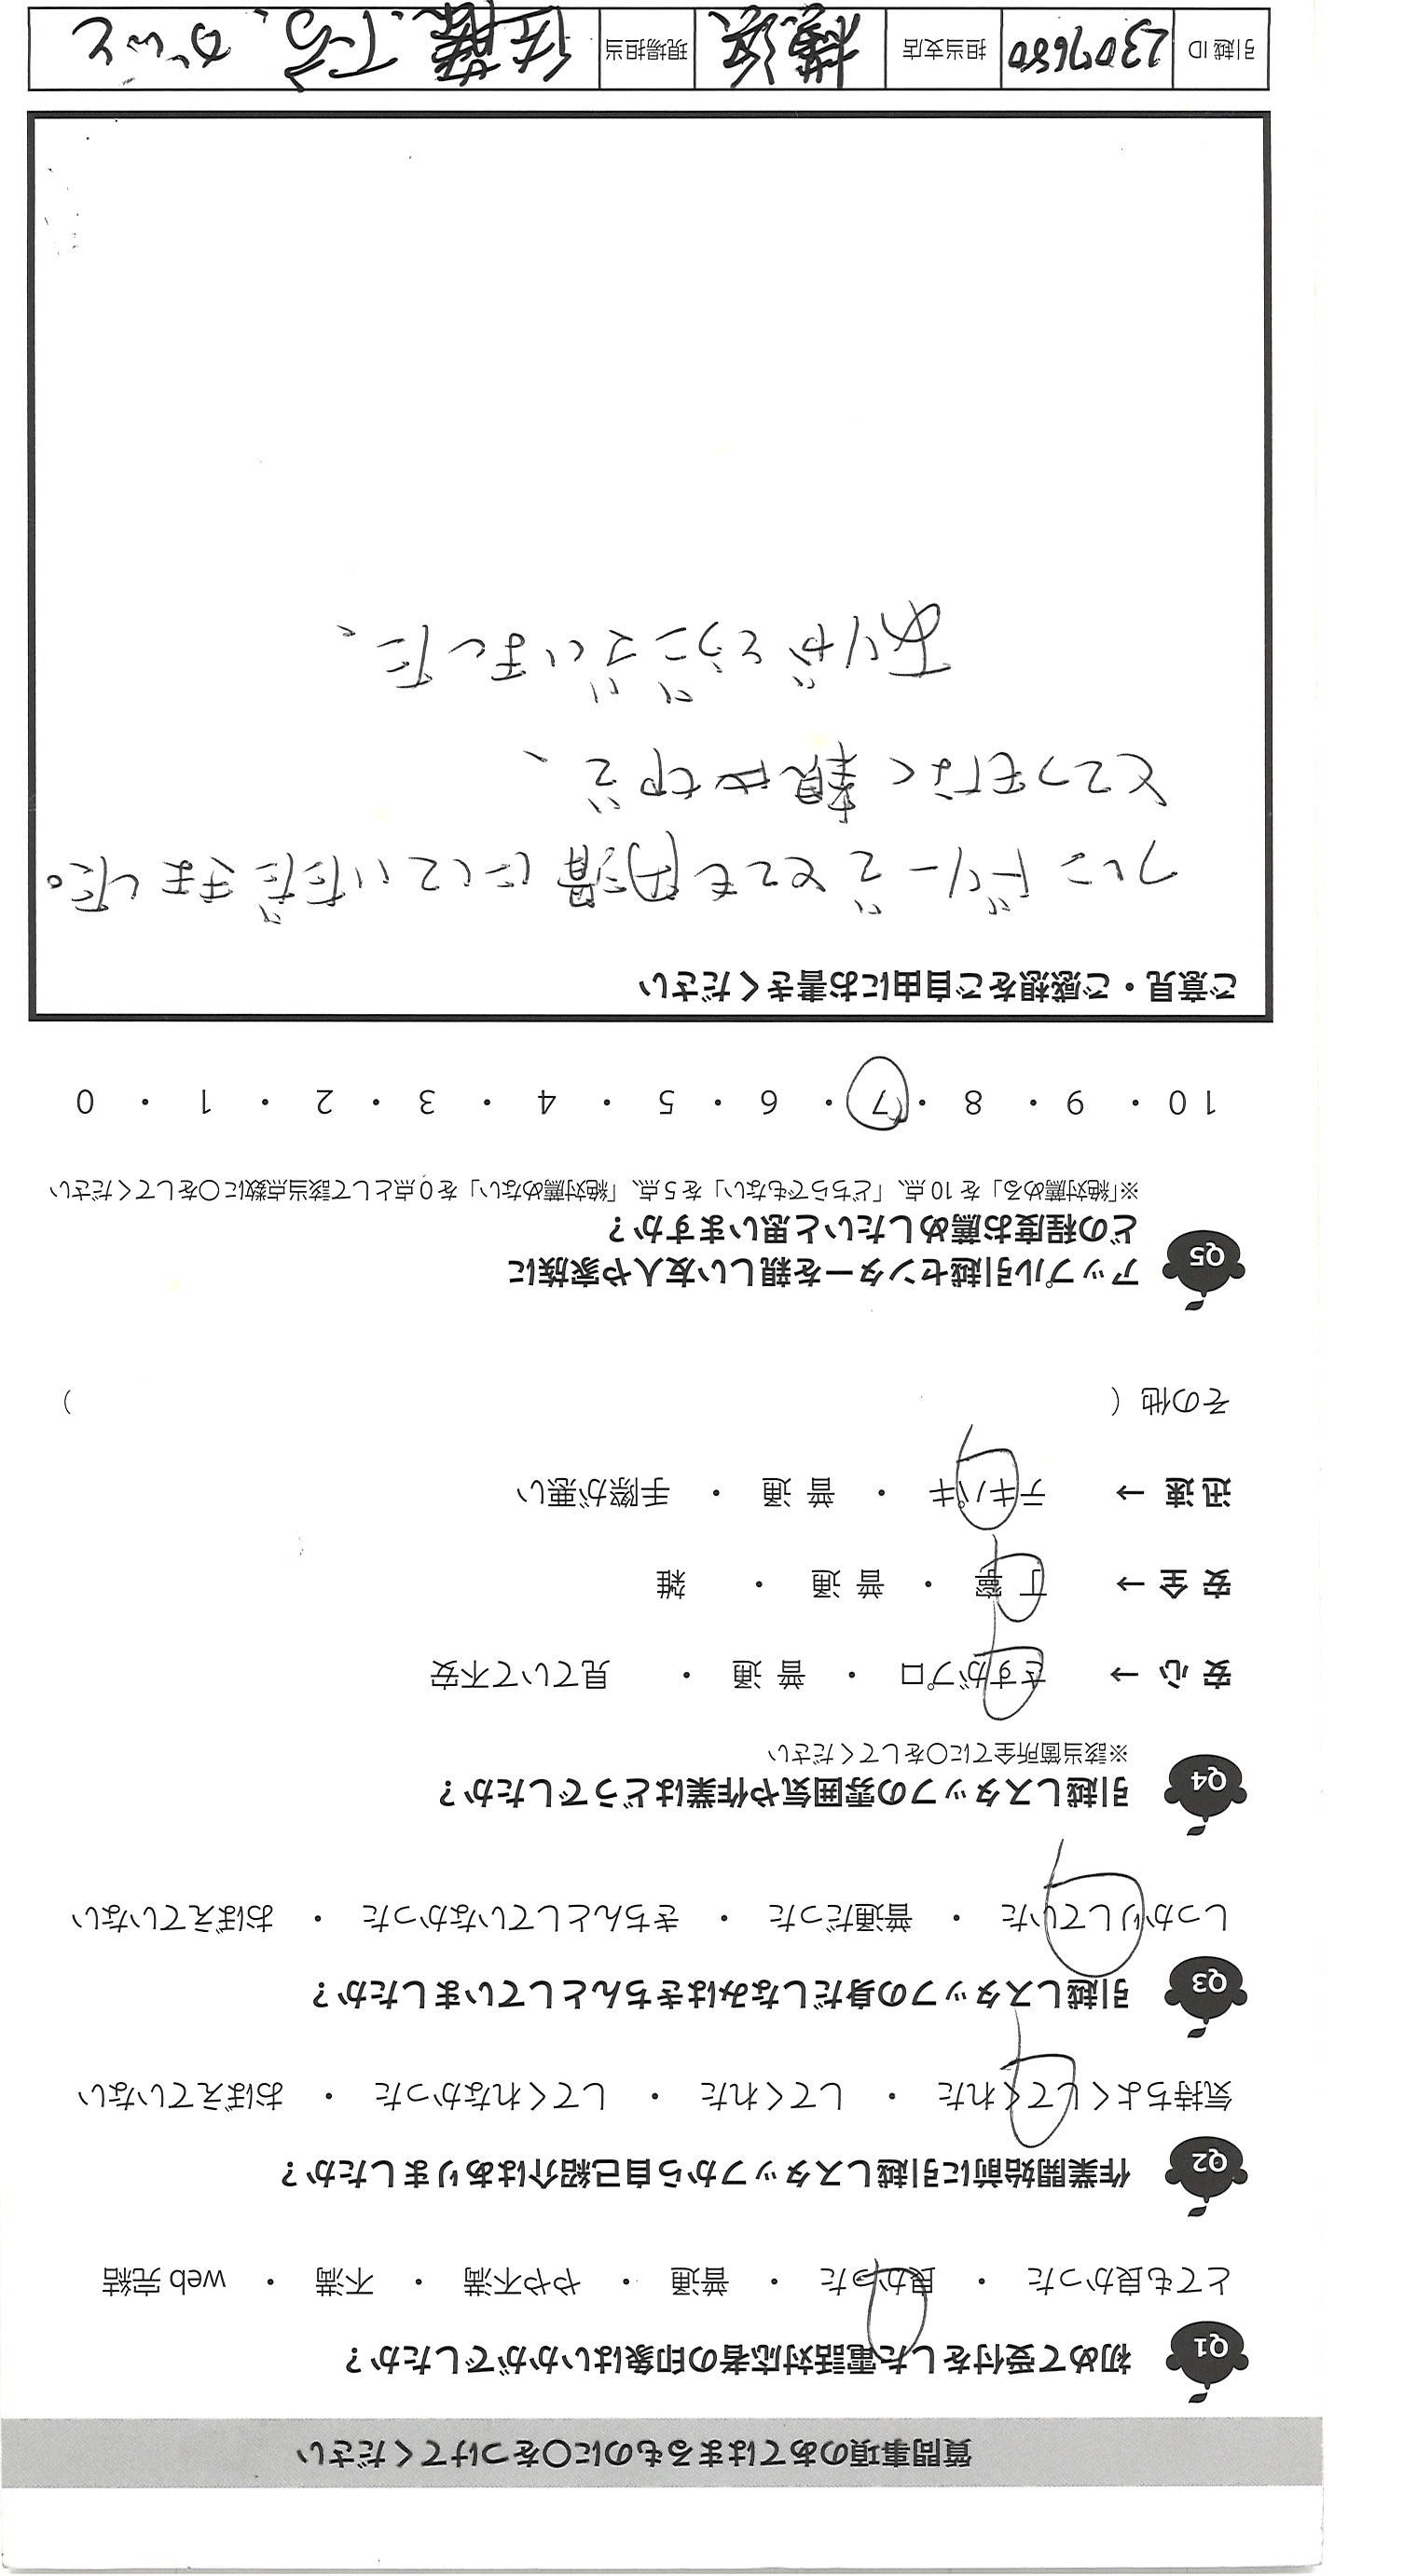 質問事項のあてはまるものに○をつけてください
Q1 初めて受付をした電話対応者の印象はいかがでしたか？
とても良かった ・ 良かった ・ 普通 ・ やや不満 ・ 不満 ・ web 完結
Q2 作業開始前に引越しスタッフから自己紹介はありましたか？
気持ちよくしてくれた ・ してくれた ・ してくれなかった ・ おぼえていない
Q3 引越しスタッフの身だしなみはきちんとしていましたか？
しっかりしていた ・ 普通だった ・ きちんとしていなかった ・ おぼえていない
Q4 引越しスタッフの雰囲気や作業はどうでしたか？
※該当箇所全てに○をしてください
安 心 → さすがプロ ・ 普 通 ・ 見ていて不安
安 全 → 丁 寧 ・ 普 通 ・ 雑
迅 速 → テキパキ ・ 普 通 ・ 手際が悪い
その他（ ）
Q5 アップル引越センターを親しい友人や家族に
どの程度お薦めしたいと思いますか？
※「絶対薦める」を 10 点、「どちらでもない」を 5 点、「絶対薦めない」を 0 点として該当点数に○をしてください
10 ・ 9 ・ 8 ・ 7 ・ 6 ・ 5 ・ 4 ・ 3 ・ 2 ・ 1 ・ 0
ご意見・ご感想をご自由にお書きください
フレンドリーでとても円滑にしていただきました。
とってもなく親切で、
ありがとうございました、
引越 ID 2307680 担当支店 横浜 現場担当 佐藤、